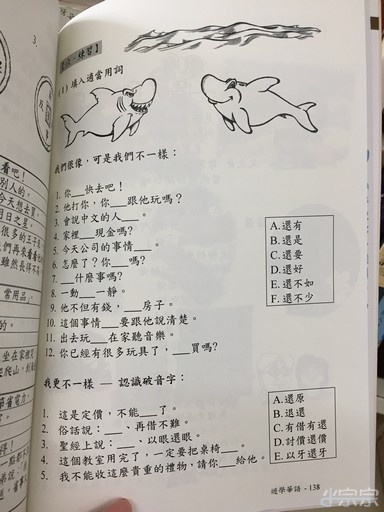 3.
看吧！
別人的。
今天想去買。
明日之星。
很多的王子
常用品：
【活·練習】
(1) 填入適當用詞
我們很像，可是我們不一樣：
1. 你___快去吧！
2. 他打你，你___跟他玩嗎？
3. 會說中文的人___。
4. 家裡___現金嗎？
5. 今天公司的事情___。
6. 怎麼了？你___嗎？
7. ___什麼事嗎？
8. 一動___一靜。
9. 他不但有錢，___房子。
10. 這個事情___要跟他說清楚。
11. 出去玩___在家聽音樂。
12. 你已經有很多玩具了，___買嗎？
A.還有
B.還是
C.還要
D.還好
E.還不如
F.還不少
我更不一樣 — 認識破音字：
1. 這是定價，不能___了。
2. 俗話說：___、再借不難。
3. 聖經上說：___、以眼還眼。
4. 這個教室用完了，一定要把桌椅___。
5. 我不能收這麼貴重的禮物，請你___給他。
A.還原
B.退還
C.有借有還
D.討價還價
E.以牙還牙
遊學華語 - 138